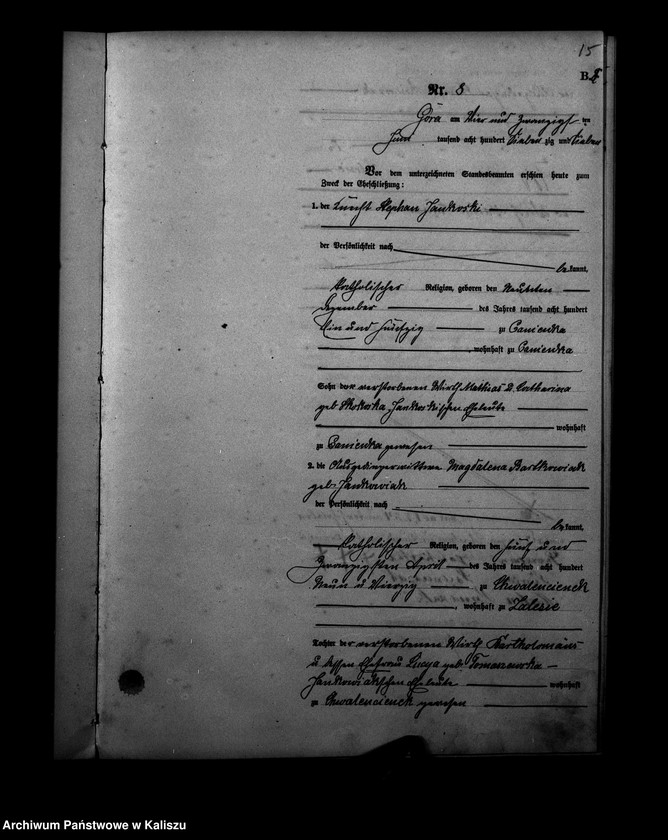 15
B.
Nr. 8
Góra am Vier und Zwanzigsten
Juni tausend acht hundert sieben zig und sieben
Vor dem unterzeichneten Standesbeamten erschien heute zum
Zweck der Eheschließung:
1. der Knecht Stephan Jankoski
der Persönlichkeit nach
be kannt,
Katholischer Religion, geboren den Neunten
Dezember des Jahres tausend acht hundert
Ein und fünfzig zu Panienka
, wohnhaft zu Panienka
Sohn der verstorbenen Wirth Mathias u. Catharina
geb. Jankoskischen Eheleute
wohnhaft
zu Panienka gewesen
2. die Ausgedingerwittwe Magdalena Bartkowiak
geb. Jankowiak
der Persönlichkeit nach
be kannt,
Katholischer Religion, geboren den fünf und
Zwanzigsten April des Jahres tausend acht hundert
Neun u Vierzig zu Chwalencienek
, wohnhaft zu Zalesie
Tochter der verstorbenen Wirth Bartholomäus
u. dessen Ehefrau Lucya geb. Tomaszewska
Jankowiakschen Eheleute wohnhaft
zu Chwalencienek gewesen
Archiwum Państwowe w Kaliszu